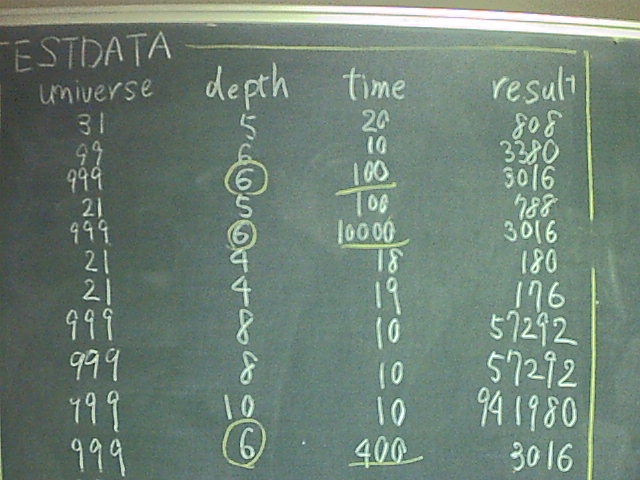 TESTDATA
universe depth time result
31 5 20 808
99 6 10 3380
999 6 100 3016
21 5 100 788
999 6 10000 3016
21 4 18 180
21 4 19 176
999 8 10 57292
999 8 10 57292
999 10 10 941980
999 6 400 3016